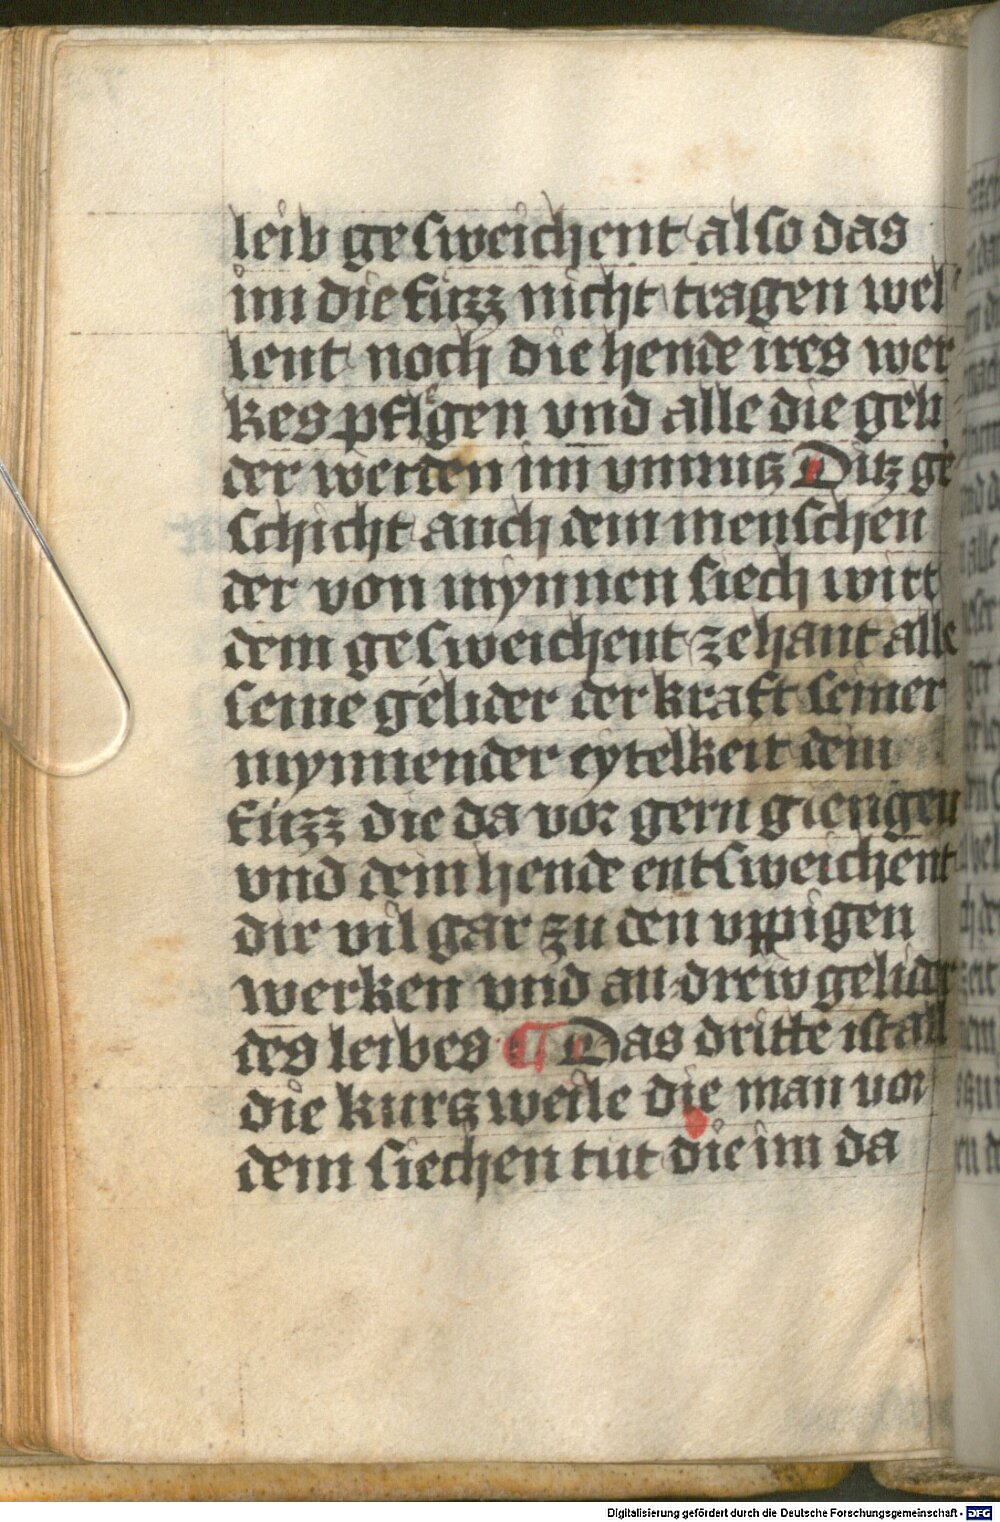 leib gesweichent also das
im die fuzz nicht tragen wel
lent noch die hende ires wer
kes pflegen vnd alle die geli
der werden im vnnutz Ditz ge
schicht auch dem menschen
der von mynnen siech wirt
dem gesweichent zehant alle
seine gelider der kraft seiner
mynnender eytelkeit dem
fuzz die da vor gern giengen
vnd dem hende entsweichent
dir vil gar zu den vppigen
werken vnd andrew gelider
des leibes ¶ Das dritte ist all
die kurtzweile die man vor
dem siechen tut die im da
Digitalisierung gefördert durch die Deutsche Forschungsgemeinschaft - DFG